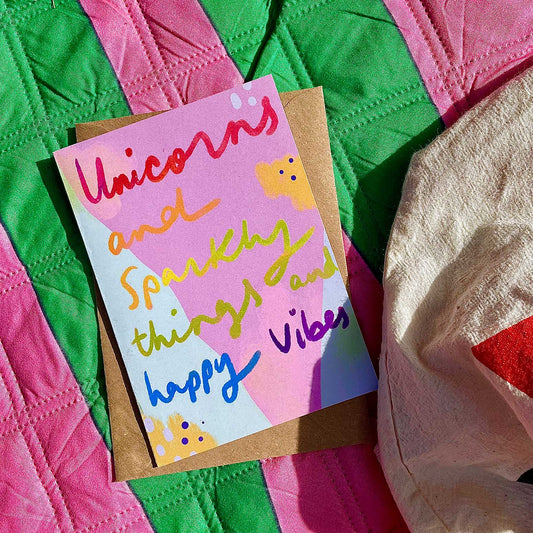 Unicorns
and
Sparkly
things and
happy Vibes